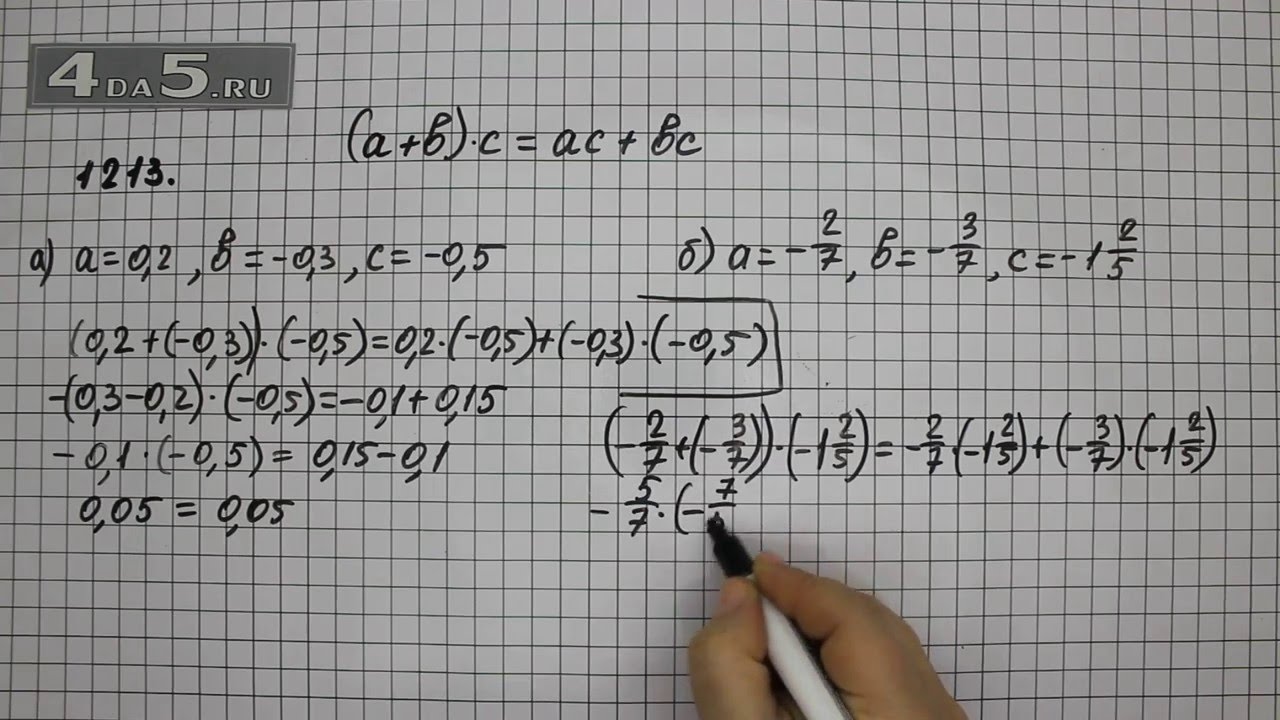 4DA5.RU
(a+в)·c = ac + вc
1213.
а) a=0,2, в=-0,3, c=-0,5
(0,2+(-0,3))·(-0,5)=0,2·(-0,5)+(-0,3)·(-0,5)
-(0,3-0,2)·(-0,5)=-0,1+0,15
-0,1·(-0,5)=0,15-0,1
0,05=0,05
б) a=-2/7, в=-3/7, c=-1 2/5
(-2/7+(-3/7))·(-1 2/5)=-2/7·(-1 2/5)+(-3/7)·(-1 2/5)
-5/7·(-7/